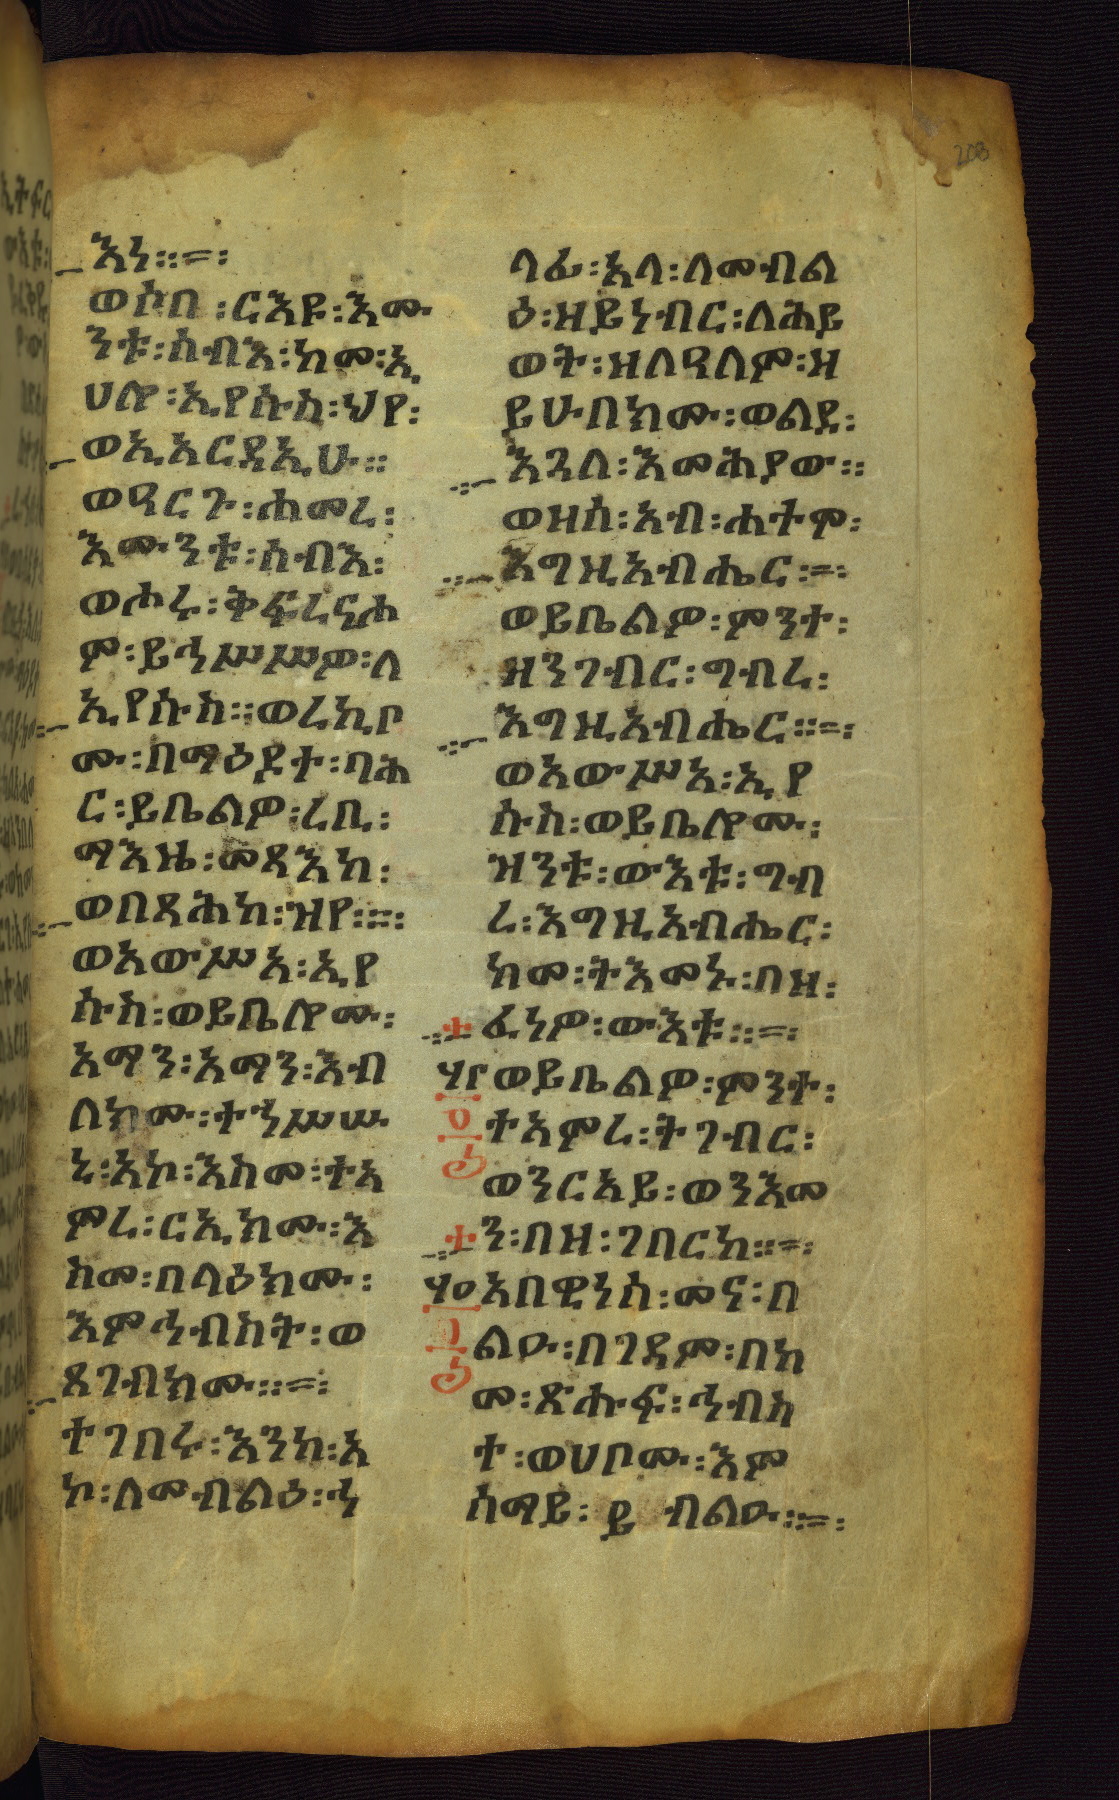 208
እነ።=፡
ወሶበ፡ርእዩ፡እሙ
ንቱ፡ሰብእ፡ከመ፡ኢ
ሀሎ፡ኢየሱስ፡ህየ፡
ወኢአርዳኢሁ።
ወዓርጉ፡ሐመረ፡
እሙንቱ፡ሰብእ፡
ወሖሩ፡ቅፍረናሖ
ም፡ይኅሥሥዎ፡ለ
ኢየሱስ።ወረኪቦ
ሙ፡በማዕዶተ፡ባሕ
ር፡ይቤልዎ፡ረቢ፡
ማእዜ፡መጻእከ፡
ወበጻሕከ፡ዝየ።=፡
ወአውሥአ፡ኢየ
ሱስ፡ወይቤሎሙ፡
አማን፡አማን፡እብ
ለክሙ፡ተኅሥሡ
ኒ፡አኮ፡እስመ፡ተአ
ምረ፡ርኢክሙ፡እ
ስመ፡በላዕክሙ፡
እምኅብስት፡ወ
ጸገብክሙ።=፡
ተገበሩ፡እንከ፡አ
ኮ፡ለመብልዕ፡ኃ
ላፊ፡አላ፡ለመብል
ዕ፡ዘይነብር፡ለሕይ
ወት፡ዘለዓለም፡ዘ
ይሁበክሙ፡ወልደ፡
እጓለ፡እመሕያው።
ወዘሰ፡አብ፡ሐተም፡
እግዚአብሔር፡=፡
ወይቤልዎ፡ምንተ፡
ዘንገብር፡ግብረ፡
እግዚአብሔር።=፡
ወአውሥአ፡ኢየ
ሱስ፡ወይቤሎሙ፡
ዝንቱ፡ውእቱ፡ግብ
ረ፡እግዚአብሔር፡
ከመ፡ትእመኑ፡በዘ፡
ፈነዎ፡ውእቱ።=፡
ወይቤልዎ፡ምንተ፡
ተአምረ፡ትገብር፡
ወንርአይ፡ወንእመ
ን፡በዘ፡ገበርከ።=፡
አበዊነሰ፡መና፡በ
ልዑ፡በገዳም፡በከ
መ፡ጽሑፍ፡ኅብስ
ተ፡ወሀቦሙ፡እም
ሰማይ፡ይ ብልዑ።=፡